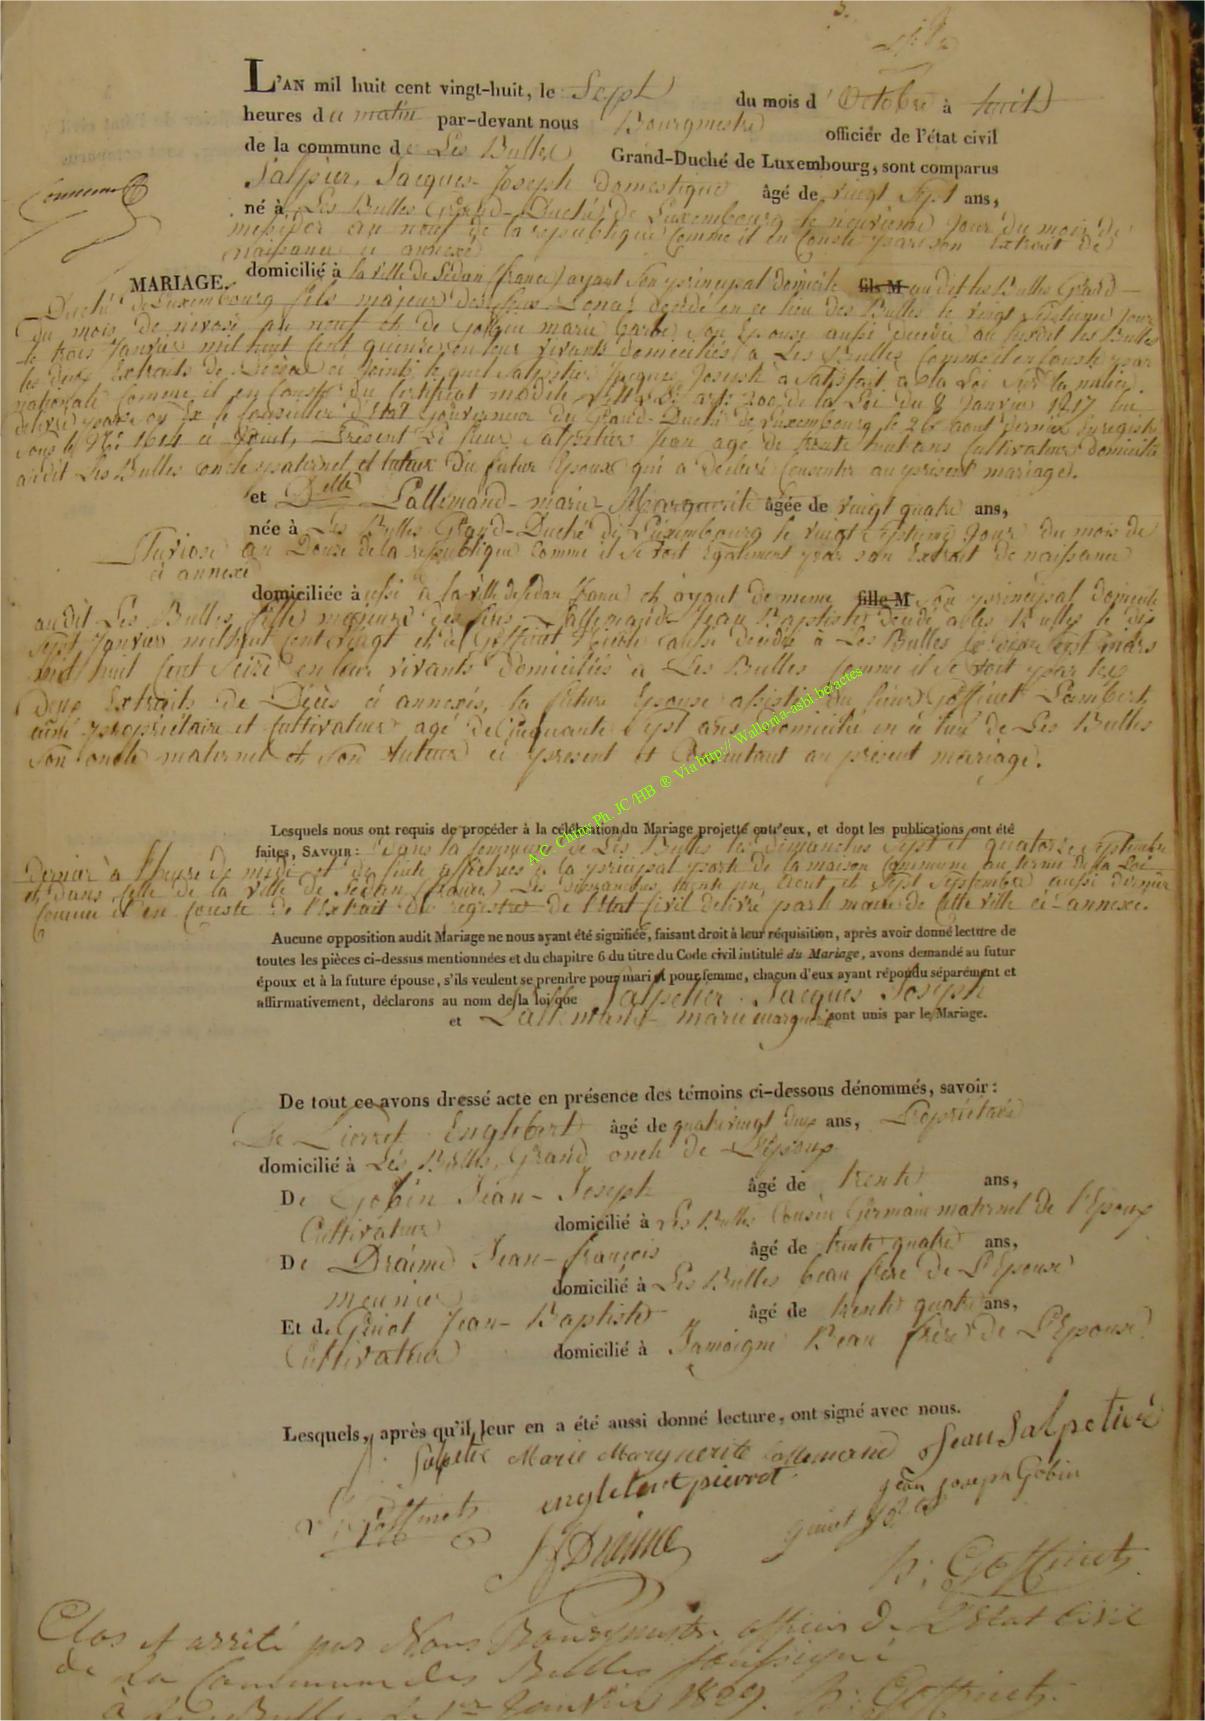 L'AN mil huit cent vingt-huit, le Sept du mois d'Octobre à huit
heures du matin par-devant nous Bourgmestre officier de l'état civil
de la commune de Les Bulles Grand-Duché de Luxembourg, sont comparus
Salpetier, Jacques-Joseph domestique âgé de vingt sept ans,
né à Les Bulles Grand-Duché de Luxembourg le neuvième Jour du mois de
messidor an neuf de la republique Comme il en Conste par son Extrait de
naissance ci annexé
domicilié à la ville de Sédan (france) ayant Son principal domicile fils M au dit les Bulles Grand-
MARIAGE.
Duché de Luxembourg fils majeur des feus décédé en ce lieu des Bulles le vingt Jour
du mois de nivose an neuf et de marie barbe Son Epouse aussi décédée au susdit les Bulles
le trois Janvier mil huit Cent quinze en leur vivants domiciliés à Les Bulles Comme il en Conste par
les deux Extraits de Décès ci joints lequel Salpetier Jacques Joseph à Satisfait à la Loi sur la milice
nationale Comme il en Conste du Certificat modèle de la Loi du 8 Janvier 1817 lui
délivré par le Conseiller d'Etat gouverneur du Grand-Duché de Luxembourg le 26 aout dernier Enregistré
Sous le N° 1614 ci Joint, Présent Le Sieur Salpetier Jean agé de trente huit ans Cultivateur domicilié
audit Les Bulles oncle paternel et tuteur du futur Epoux qui a déclaré Consentir au présent mariage.
et Delle Lallemand-marie-Marguerite âgée de vingt quatre ans,
née à Les Bulles Grand-Duché de Luxembourg le vingt Septième Jour du mois de
Pluviose an Douze de la republique Comme il se voit Egalement par son Extrait de naissance
ci annexé
domiciliée aussi à la ville de Sedan france et ayant de meme fille M son principal domicile
au dit Les Bulles fille majeure des feus Lallemand Jean Baptiste décédé à les Bulles le dix
sept Janvier mil huit cent vingt et de Goffinet aussi décédée à Les Bulles le mars
mil huit Cent Seize en leur vivants domiciliés à Les Bulles Comme il se voit par les
deux Extraits de Décès ci annexés, la future Epouse assistée du Sieur Goffinet Lambert
propriétaire et Cultivateur agé de Cinquante Sept ans Domicilié en ce lieu de Les Bulles
Son oncle maternel et Son tuteur ci présent et Consentant au présent mariage.
Lesquels nous ont requis de procéder à la célébration du Mariage projetté entr'eux, et dont les publications ont été
faites, SAVOIR: Dans la Commune de Les Bulles les Dimanches Sept et quatorze Septembre
dernier à l'heure de midi et de suite affichées à la principal porte de la maison Commune au terme de la Loi
et dans Celle de la ville de Sedan (france) Les Dimanches trente un Aout et Sept Septembre aussi dernier
Comme il en Conste de l'Extrait du registre de l'Etat Civil délivré par le maire de Cette ville ci-annexé.
Aucune opposition audit Mariage ne nous ayant été signifiée, faisant droit à leur réquisition, après avoir donné lecture de
toutes les pièces ci-dessus mentionnées et du chapitre 6 du titre du Code civil intitulé du Mariage, avons demandé au futur
époux et à la future épouse, s'ils veulent se prendre pour mari et pour femme, chacun d'eux ayant répondu séparément et
affirmativement, déclarons au nom de la loi que Salpetier Jacques Joseph
et Lallemand marie marguerite sont unis par le Mariage.
De tout ce avons dressé acte en présence des témoins ci-dessous dénommés, savoir:
De Pierret Englebert âgé de quatre vingt deux ans, Propriétaire
domicilié à Les Bulles, Grand oncle de L'Epoux
De Gobin Jean-Joseph âgé de trente ans,
Cultivateur domicilié à Les Bulles Cousin Germain maternel de l'Epoux
De Draime Jean-françois âgé de trente quatre ans,
meunier domicilié à Les Bulles beau frère de L'Epouse
Et de Guiot Jean-Baptiste âgé de trente quatre ans,
Cultivateur domicilié à Jamoigne Beau frère de L'Epouse
Lesquels, après qu'il leur en a été aussi donné lecture, ont signé avec nous.
Salpetie Marie Marguerite Lallemand Jean Salpetier
Goffinet englebert pierret jean joseph Gobin
Draime guiot
Goffinet
Clos et arrêté par Nous Bourgmestre officier de L'Etat Civil
de la Commune des Bulles soussigné
à Les Bulles le 1er Janvier 1829. Goffinet
A.C. Chiny Ph. JC/HB ® Via http:// Wallonia-asbl.be/actes